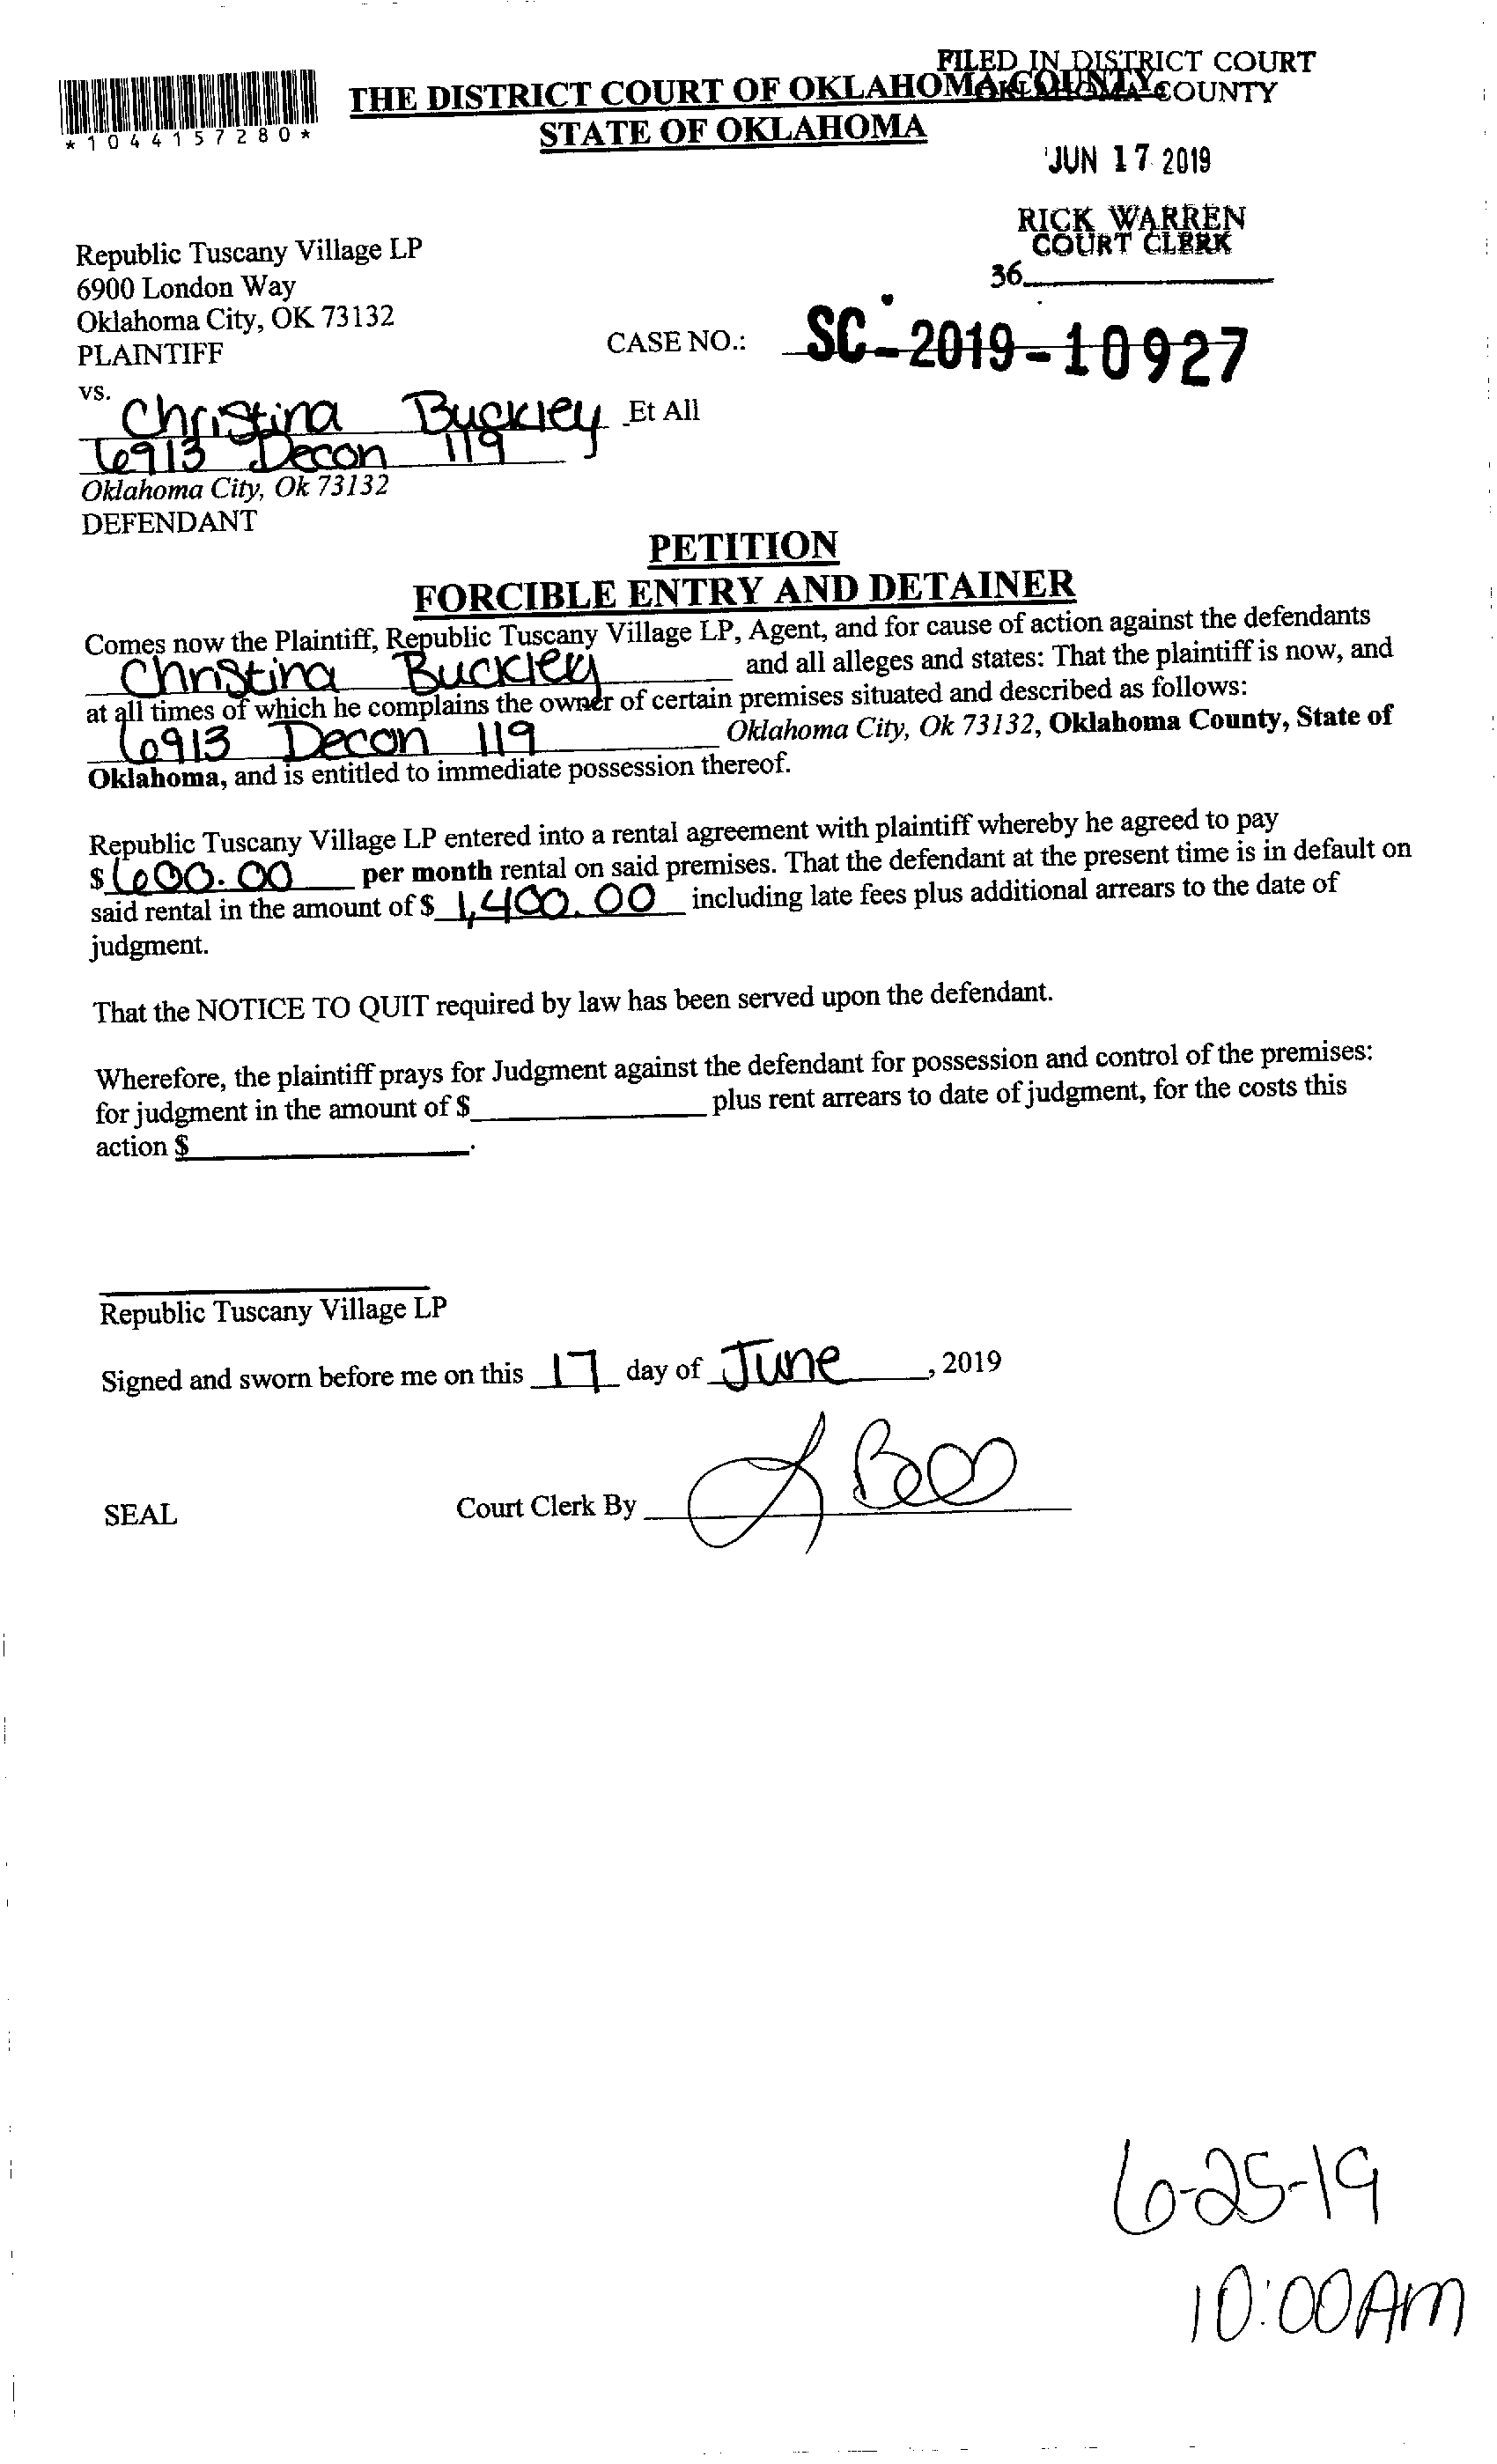 FILED IN DISTRICT COURT
OKLAHOMA COUNTY
THE DISTRICT COURT OF OKLAHOMA COUNTY
STATE OF OKLAHOMA
*1044157280*
JUN 17 2019
RICK WARREN
COURT CLERK
36
Republic Tuscany Village LP
6900 London Way
Oklahoma City, OK 73132
PLAINTIFF
CASE NO.: SC-2019-10927
vs.
Christina Buckley Et All
6913 Decon 119
Oklahoma City, Ok 73132
DEFENDANT
PETITION
FORCIBLE ENTRY AND DETAINER
Comes now the Plaintiff, Republic Tuscany Village LP, Agent, and for cause of action against the defendants
Christina Buckley and all alleges and states: That the plaintiff is now, and
at all times of which he complains the owner of certain premises situated and described as follows:
6913 Decon 119 Oklahoma City, Ok 73132, Oklahoma County, State of
Oklahoma, and is entitled to immediate possession thereof.
Republic Tuscany Village LP entered into a rental agreement with plaintiff whereby he agreed to pay
$600.00 per month rental on said premises. That the defendant at the present time is in default on
said rental in the amount of $ 1,400.00 including late fees plus additional arrears to the date of
judgment.
That the NOTICE TO QUIT required by law has been served upon the defendant.
Wherefore, the plaintiff prays for Judgment against the defendant for possession and control of the premises:
for judgment in the amount of $ plus rent arrears to date of judgment, for the costs this
action $ .
Republic Tuscany Village LP
Signed and sworn before me on this 17 day of June, 2019
SEAL Court Clerk By
6-25-19
10:00AM